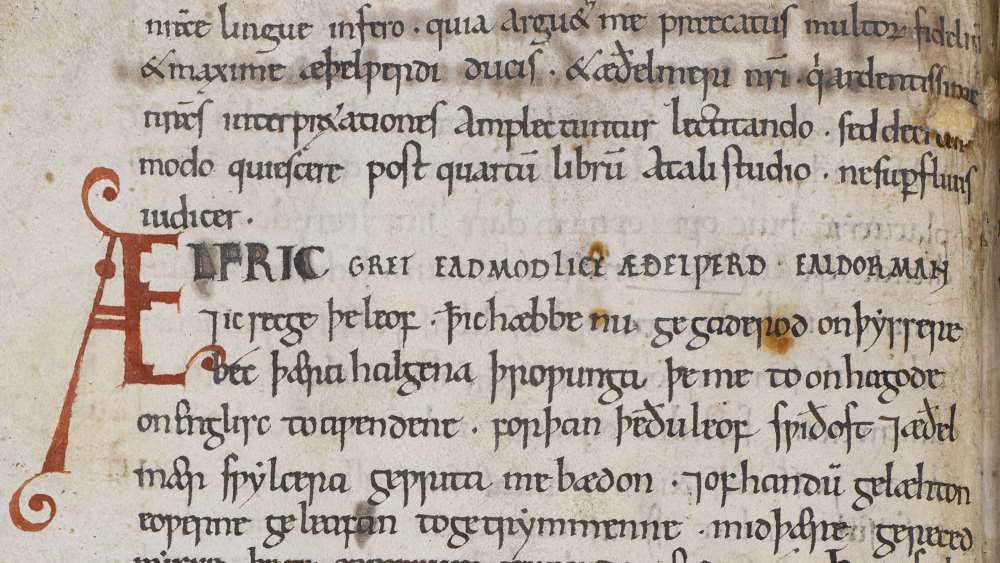 nr̄æ lingue infero · quia arguet me precatus multoꝝ fideliū
&maxime æþelƿerdi ducis · &æðelmeri nr̄i · q̍ ardentissime
nr̄as interpretationes amplectuntur lectitando · sed decerno
modo quiescere post quartū librū a tali studio · ne suꝑfluus
iudicer ·
ÆLFRIC GRET EADMODLICE ÆÐELǷERD · EALDORMAN
⁊ic secge þe leof · ꝥ ic hæbbe nu gegaderod on þyssere
bec þæra halgena þroƿunga þe me to onhagode
on englisc to aƿendene · forþan þe ðu leof sƿiðost ⁊æðel
mær sƿylcera geƿrita me bædon · ⁊of handū gelæhton
eoƿerne geleafan to getrymmenne · mid þære gereced